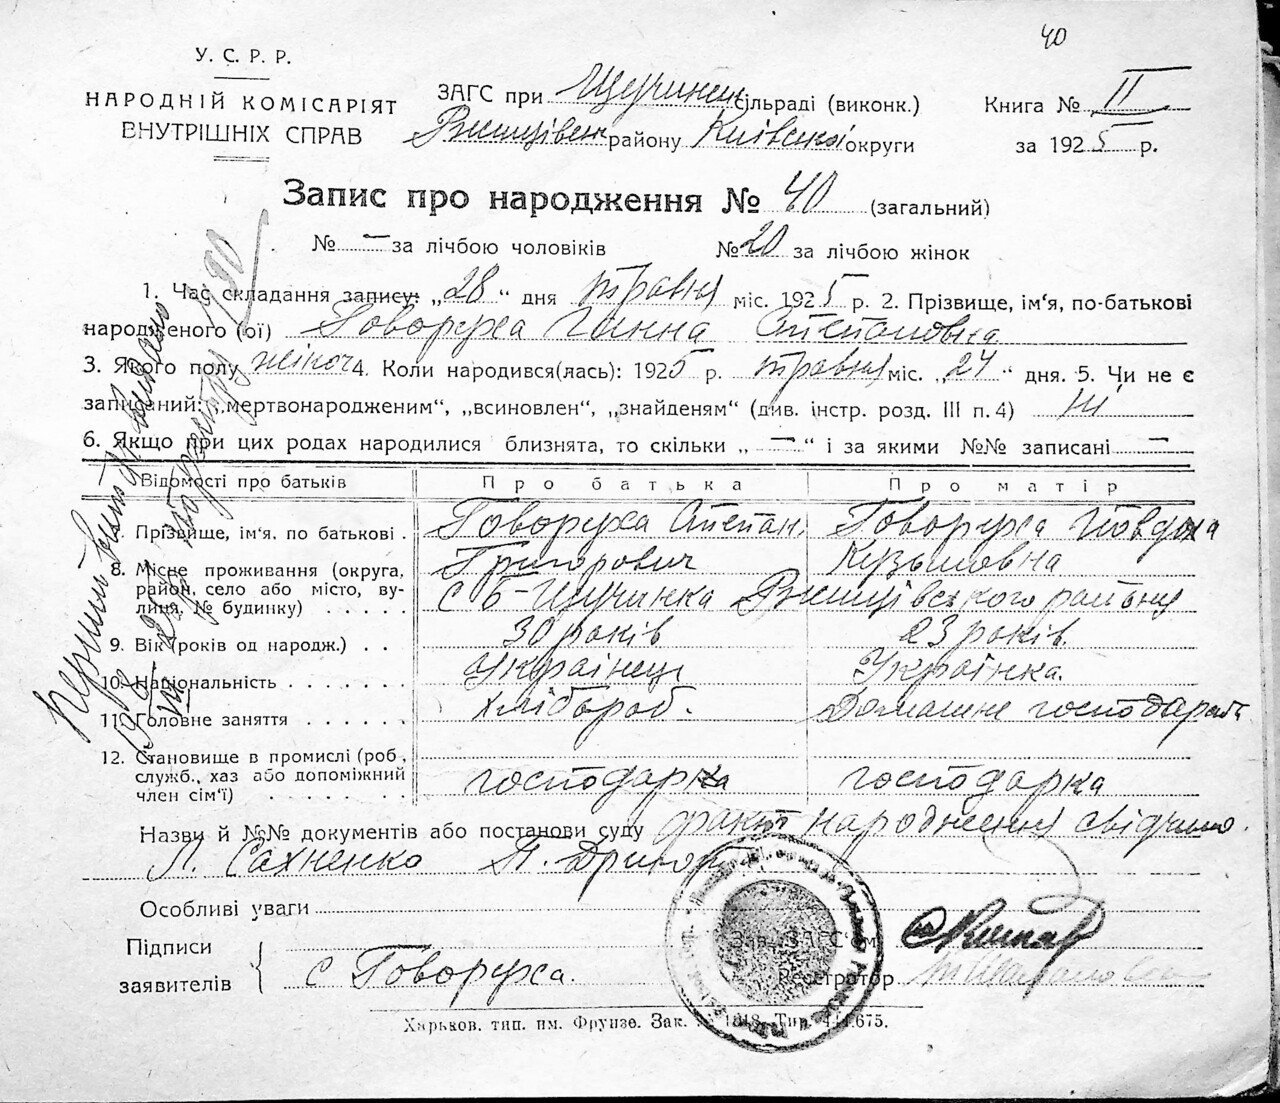 40
У. С. Р. Р.
НАРОДНІЙ КОМІСАРІЯТ
ВНУТРІШНІХ СПРАВ
ЗАГС при Щучинск сільраді (виконк.)
Ржищівськ району Київської округи
Книга № II
за 1925 р.
Запис про народження № 40 (загальний)
№ — за лічбою чоловіків № 20 за лічбою жінок
1. Час складання запису: „28“ дня травня міс. 1925 р. 2. Прізвище, ім‘я, по-батькові
народженого (ої) Говоруха Ганна Степановна
3. Якого полу жіноч 4. Коли народився(лась): 1925 р. травня міс. „24“ дня. 5. Чи не є
записаний: „мертвонародженим“, „всиновлен“, „знайденям“ (див. інстр. розд. III п. 4) ні
6. Якщо при цих родах народилися близнята, то скільки „—“ і за якими №№ записані —
Відомості про батьків Про батька Про матір
7. Прізвище, ім‘я, по батькові . Говоруха Степан Григорович Говоруха Йовдоха Кузьмовна
8. Місце проживання (округа, район, село або місто, вулиця, № будинку) . . . . . с Б-Щучинка Ржищівського району
9. Вік (років од народж.) . . 30 років 23 років.
10. Національність . . . . . . . Українець Українка.
11. Головне заняття . . . . . . Хлібороб. Домашнє господарств
12. Становище в промислі (роб., служб., хаз або допоміжний член сім‘ї) . . . . . . . господарка господарка
Назви й №№ документів або постанови суду факт народження свідчило.
Л. Сахненко П.
Особливі уваги
Підписи
заявителів
с Говоруха.
Зав. ЗАГС‘ом
Реєстратор
Харьков. тип. им. Фрунзе. Зак. 1818. Тир. 444.675.